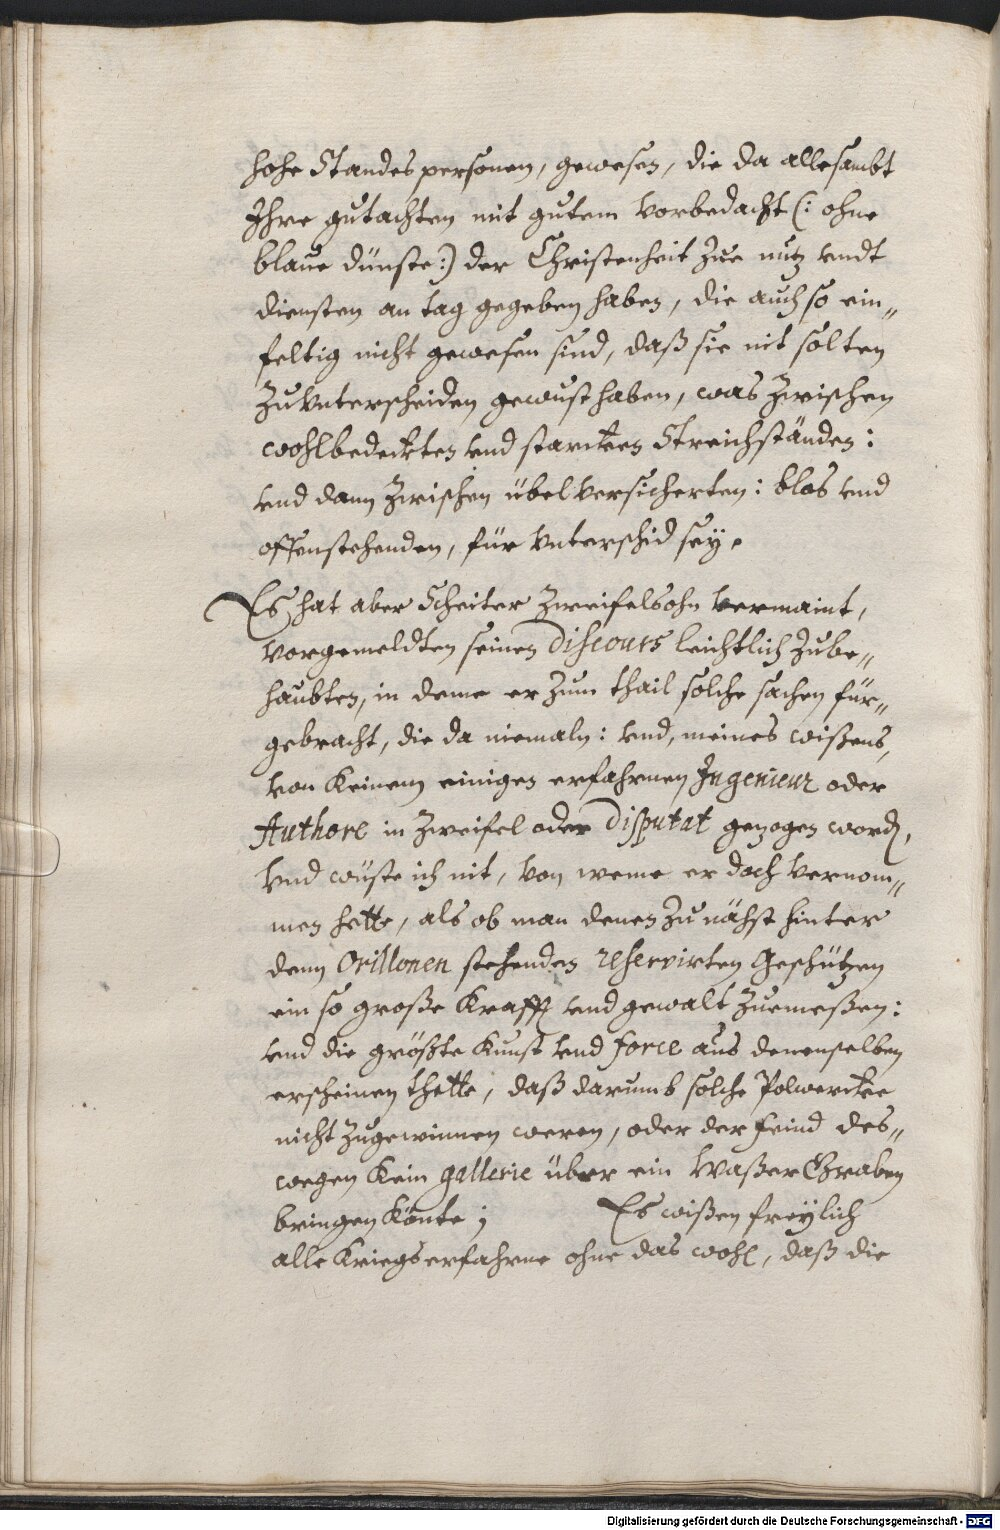 hohe Standespersonen, gewesen, die da allesambt
Ihre gutachten mit gutem vorbedacht (: ohne
blaue dünste:) der Christenheit zue nutz vndt
diensten an tag gegeben haben, die auch so ein„
feltig nicht gewesen sind, daß sie nit solten
zu vnterscheiden gewust haben, was zwischen
wohlbedeckten vnd starcken Streichständen:
vnd dann zwischen übel versicherten: blos vnd
offenstehenden, für vnterschid sey.
Es hat aber Scheiter zweifelsohn vermaint,
vorgemeldten seinen Discours leichtlich zube„
haubten, in deme er zum thail solche sachen für„
gebracht, die da niemaln: vnd, meines wißens,
von keinem einigen erfahrnen Ingenieur oder
Authore in zweifel oder Disputat gezogen word,
Vnd wüste ich nit, von weme er doch vernom„
men hette, als ob man denen zu nähst hinter
denn Orillonen stehenden reservirten Geschützen
ein so große Krafft vnd gewalt zuemeßen:
vnd die größte Kunst vnd force aus denenselben
erscheinen thette, daß darumb solche Polwercke
nicht zugewinnen weren, oder der feind des„
wegen kein gallerie über ein WaßerGraben
bringen könte; Es wißen freÿlich
alle Kriegserfahrne ohne das wohl, daß die
Digitalisierung gefördert durch die Deutsche Forschungsgemeinschaft - DFG